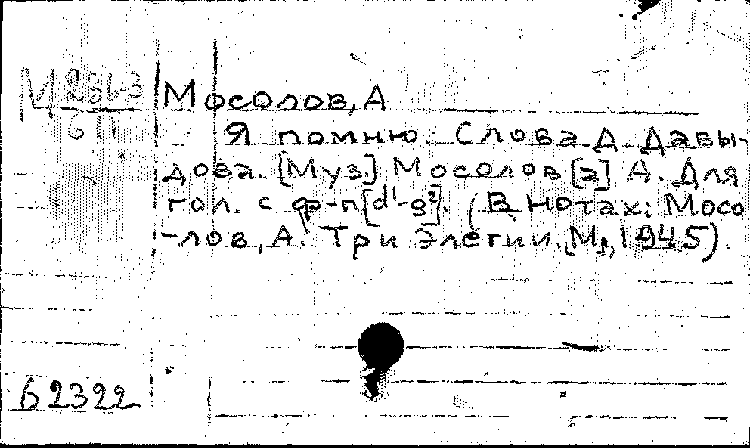 Мосолов, А
Я помню. Слова Д. Давы-
дова. [Муз] Мосолов[а] А. Для
гол. с ф-п[d¹-g²]. (В нотах: Мосо
-лов, А. Три элегии. М., 1945).
62322